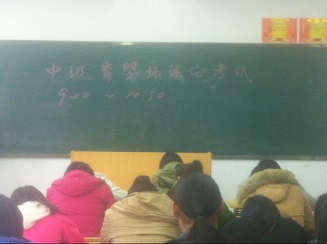 中级育婴师理论考试
9:00 — 10:30